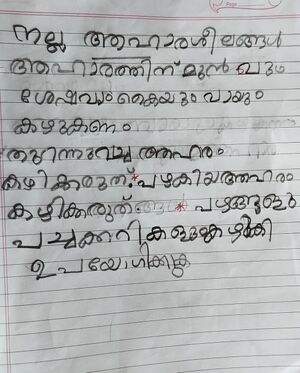 നല്ല ആഹാരശീലങ്ങൾ
ആഹാരത്തിന് മുൻ പും
ശേഷവും കൈയും വായും
കഴുകണം
തുറന്നുവെച്ച ആഹാരം
കഴിക്കരുത്. പഴകിയ ആഹാരം
കഴിക്കരുത് പഴങ്ങളും
പച്ചക്കറികളും കഴുകി
ഉപയോഗിക്കുക